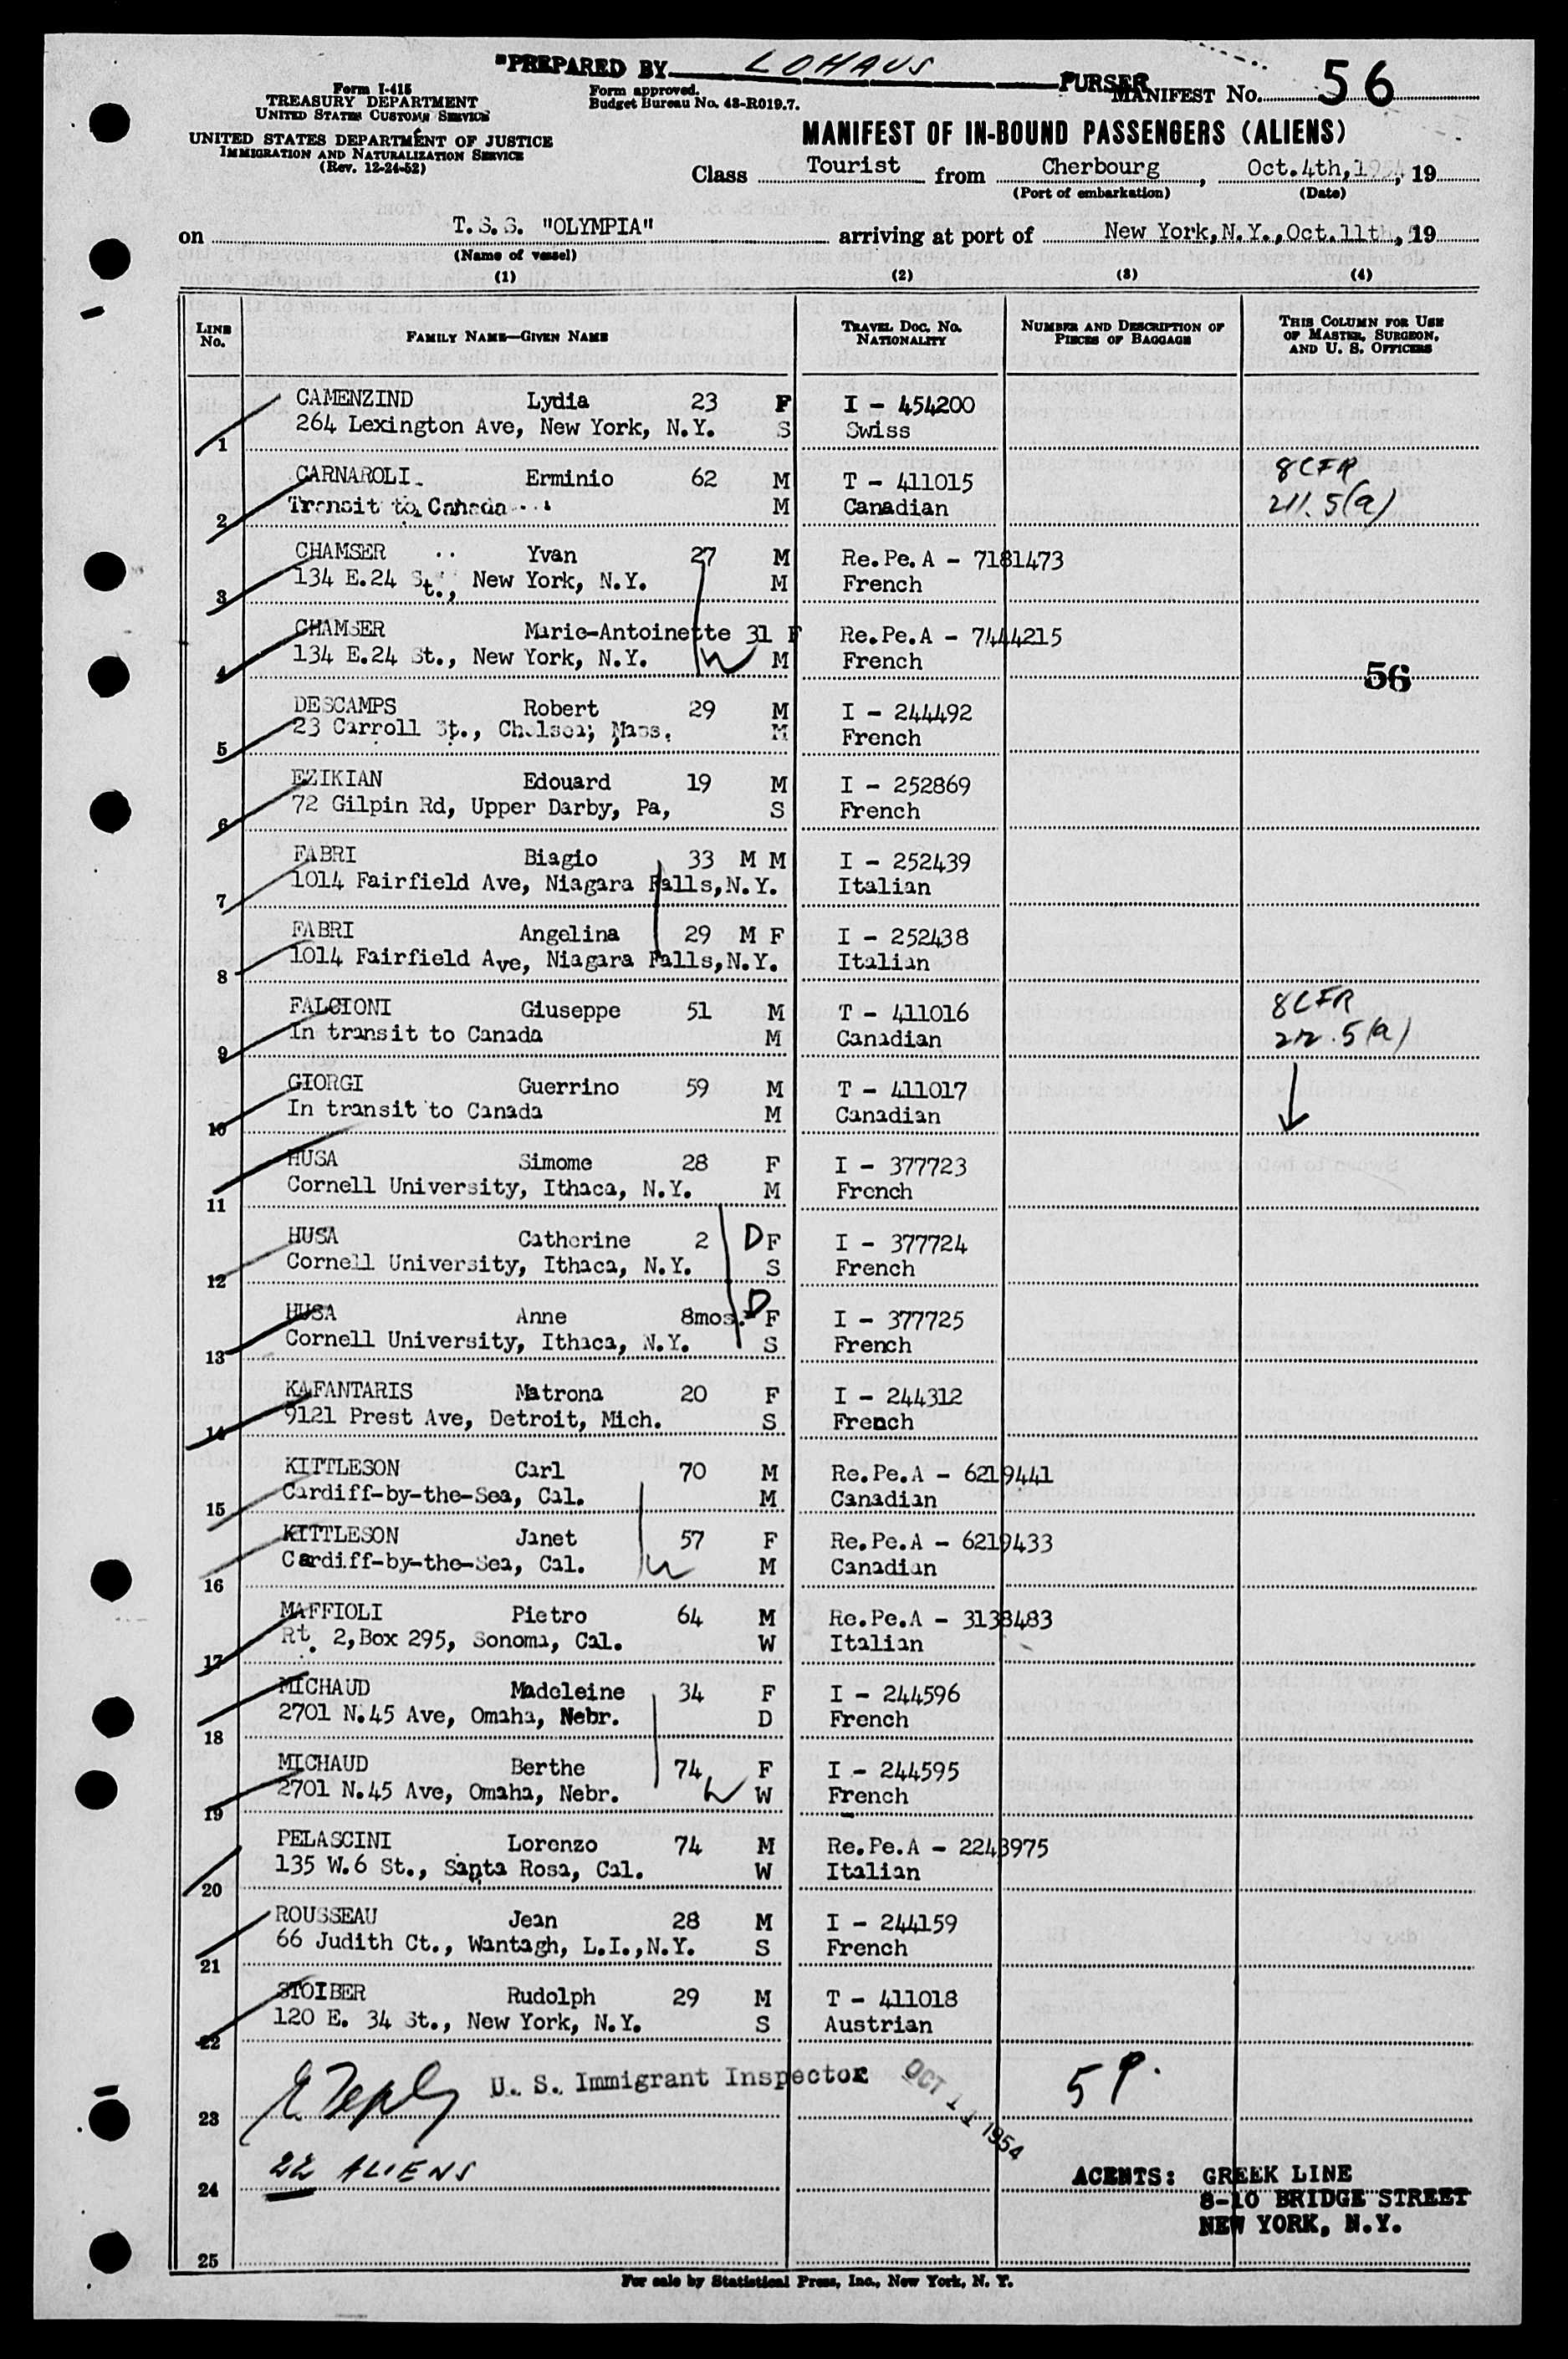 "PREPARED BY LOHAUS PURSER
Form I-415
TREASURY DEPARTMENT
UNITED STATES CUSTOMS SERVICE
UNITED STATES DEPARTMENT OF JUSTICE
IMMIGRATION AND NATURALIZATION SERVICE
(Rev. 12-24-52)
Form approved.
Budget Bureau No. 43-R019.7.
MANIFEST NO. 56
MANIFEST OF IN-BOUND PASSENGERS (ALIENS)
Class Tourist from Cherbourg, Oct. 4th, 1954, 19
(Port of embarkation) (Date)
on T.S.S. "OLYMPIA" arriving at port of New York, N.Y., Oct. 11th, 19
(Name of vessel)
(1) (2) (3) (4)
LINE NO. FAMILY NAME—GIVEN NAME TRAVEL DOC. NO. NATIONALITY NUMBER AND DESCRIPTION OF PIECES OF BAGGAGE THIS COLUMN FOR USE OF MASTER, SURGEON, AND U. S. OFFICERS
CAMENZIND Lydia 23 F I - 454200
1 264 Lexington Ave, New York, N.Y. S Swiss
CARNAROLI Erminio 62 M T - 411015 8 CFR
2 Transit to Canada M Canadian 211.5(a)
CHAMSER Yvan 27 M Re.Pe.A - 7181473
3 134 E.24 St., New York, N.Y. M French
CHAMSER Marie-Antoinette 31 F Re.Pe.A - 7444215
4 134 E.24 St., New York, N.Y. M French
56
DESCAMPS Robert 29 M I - 244492
5 23 Carroll St., Chelsea, Mass. M French
EZIKIAN Edouard 19 M I - 252869
6 72 Gilpin Rd, Upper Darby, Pa, S French
FABRI Biagio 33 M M I - 252439
7 1014 Fairfield Ave, Niagara Falls, N.Y. Italian
FABRI Angelina 29 M F I - 252438
8 1014 Fairfield Ave, Niagara Falls, N.Y. Italian
FALCIONI Giuseppe 51 M T - 411016 8 CFR
9 In transit to Canada M Canadian 212.5(a)
GIORGI Guerrino 59 M T - 411017
10 In transit to Canada M Canadian
HUSA Simome 28 F I - 377723
11 Cornell University, Ithaca, N.Y. M French
HUSA Catherine 2 D F I - 377724
12 Cornell University, Ithaca, N.Y. S French
HUSA Anne 8mos. D F I - 377725
13 Cornell University, Ithaca, N.Y. S French
KAFANTARIS Matrona 20 F I - 244312
14 9121 Prest Ave, Detroit, Mich. S French
KITTLESON Carl 70 M Re.Pe.A - 6219441
15 Cardiff-by-the-Sea, Cal. M Canadian
KITTLESON Janet 57 F Re.Pe.A - 6219433
16 Cardiff-by-the-Sea, Cal. M Canadian
MAFFIOLI Pietro 64 M Re.Pe.A - 3138483
17 Rt. 2, Box 295, Sonoma, Cal. W Italian
MICHAUD Madeleine 34 F I - 244596
18 2701 N.45 Ave, Omaha, Nebr. D French
MICHAUD Berthe 74 F I - 244595
19 2701 N.45 Ave, Omaha, Nebr. W French
PELASCINI Lorenzo 74 M Re.Pe.A - 2243975
20 135 W.6 St., Santa Rosa, Cal. W Italian
ROUSSEAU Jean 28 M I - 244159
21 66 Judith Ct., Wantagh, L.I., N.Y. S French
STOIBER Rudolph 29 M T - 411018
22 120 E. 34 St., New York, N.Y. S Austrian
U. S. Immigrant Inspector OCT 11 1954
23
22 ALIENS
24
AGENTS: GREEK LINE
8-10 BRIDGE STREET
NEW YORK, N.Y.
25
For sale by Statistical Press, Inc., New York, N. Y.